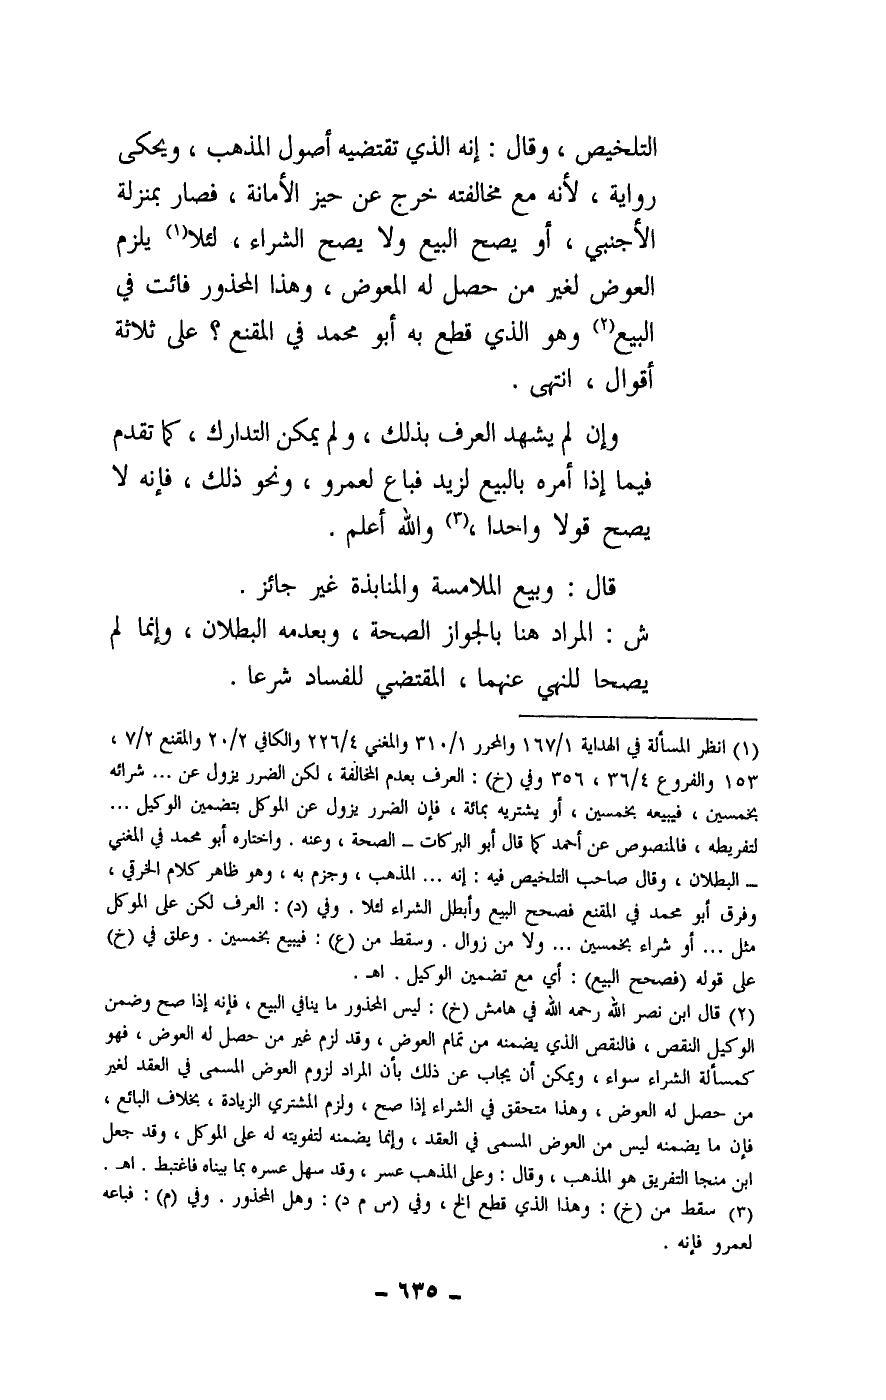 التلخيص ، وقال : إنه الذي تقتضيه أصول المذهب ، ويحكى
رواية ، لأنه مع مخالفته خرج عن حيز الأمانة ، فصار بمنزلة
الأجنبي ، أو يصح البيع ولا يصح الشراء ، لئلا(١) يلزم
العوض لغير من حصل له المعوض ، وهذا المحذور فائت في
البيع(٢) وهو الذي قطع به أبو محمد في المقنع ؟ على ثلاثة
أقوال ، انتهى .
وإن لم يشهد العرف بذلك ، ولم يمكن التدارك ، كما تقدم
فيما إذا أمره بالبيع لزيد فباع لعمرو ، ونحو ذلك ، فإنه لا
يصح قولا واحدا ،(٣) والله أعلم .
قال : وبيع الملامسة والمنابذة غير جائز .
ش : المراد هنا بالجواز الصحة ، وبعدمه البطلان ، وإنما لم
يصحا للنهي عنهما ، المقتضي للفساد شرعا .
(١) انظر المسألة في الهداية ١٦٧/١ والمحرر ٣١٠/١ والمغني ٢٢٦/٤ والكافي ٢٠/٢ والمقنع ٧/٢ ،
١٥٣ والفروع ٣٦/٤ ، ٣٥٦ وفي (خ) : العرف بعدم المخالفة ، لكن الضرر يزول عن ... شرائه
بخمسين ، فيبيعه بخمسين ، أو يشتريه بمائة ، فإن الضرر يزول عن الموكل بتضمين الوكيل ...
لتفريطه ، فالمنصوص عن أحمد كما قال أبو البركات ــ الصحة ، وعنه . واختاره أبو محمد في المغني
ــ البطلان ، وقال صاحب التلخيص فيه : إنه ... المذهب ، وجزم به ، وهو ظاهر كلام الخرقي ،
وفرق أبو محمد في المقنع فصحح البيع وأبطل الشراء لئلا . وفي (د) : العرف لكن على الموكل
مثل ... أو شراء بخمسين ... ولا من زوال . وسقط من (ع) : فيبيع بخمسين . وعلق في (خ)
على قوله (فصحح البيع) : أي مع تضمين الوكيل . اهـ .
(٢) قال ابن نصر الله رحمه الله في هامش (خ) : ليس المحذور ما ينافي البيع ، فإنه إذا صح وضمن
الوكيل النقص ، فالنقص الذي يضمنه من تمام العوض ، وقد لزم غير من حصل له العوض ، فهو
كمسألة الشراء سواء ، ويمكن أن يجاب عن ذلك بأن المراد لزوم العوض المسمى في العقد لغير
من حصل له العوض ، وهذا متحقق في الشراء إذا صح ، ولزم المشتري الزيادة ، بخلاف البائع ،
فإن ما يضمنه ليس من العوض المسمى في العقد ، وإنما يضمنه لتفويته له على الموكل ، وقد جعل
ابن منجا التفريق هو المذهب ، وقال : وعلى المذهب عسر ، وقد سهل عسره بما بيناه فاغتبط . اهـ .
(٣) سقط من (خ) : وهذا الذي قطع الخ ، وفي (س م د) : وهل المحذور . وفي (م) : فباعه
لعمرو فإنه .
ــ ٦٣٥ ــ